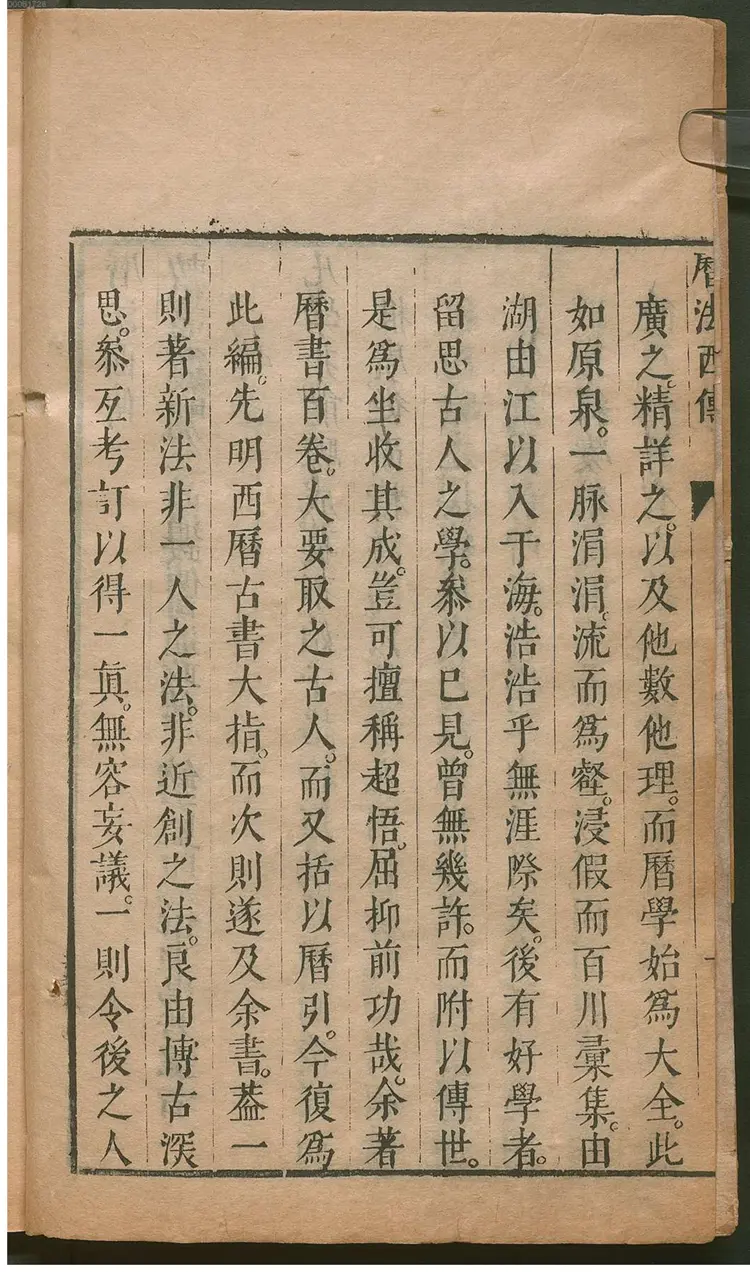 曆法西傳
廣之。精詳之。以及他數他理。而曆學始爲大全。此
如原泉。一脉涓涓。流而爲壑。浸假而百川彙集。由
湖由江以入于海。浩浩乎無涯際矣。後有好學者。
留思古人之學。叅以已見。曾無幾許。而附以傳世。
是爲坐收其成。豈可擅稱超悟。屈抑前功哉。余著
曆書百卷。大要取之古人。而又括以曆引。今復爲
此編。先明西曆古書大指。而次則遂及余書。葢一
則著新法非一人之法。非近創之法。良由博古深
思。叅互考訂以得一眞。無容妄議。一則令後之人